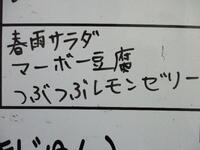 春雨サラダ
マーボー豆腐
つぶつぶレモンゼリー